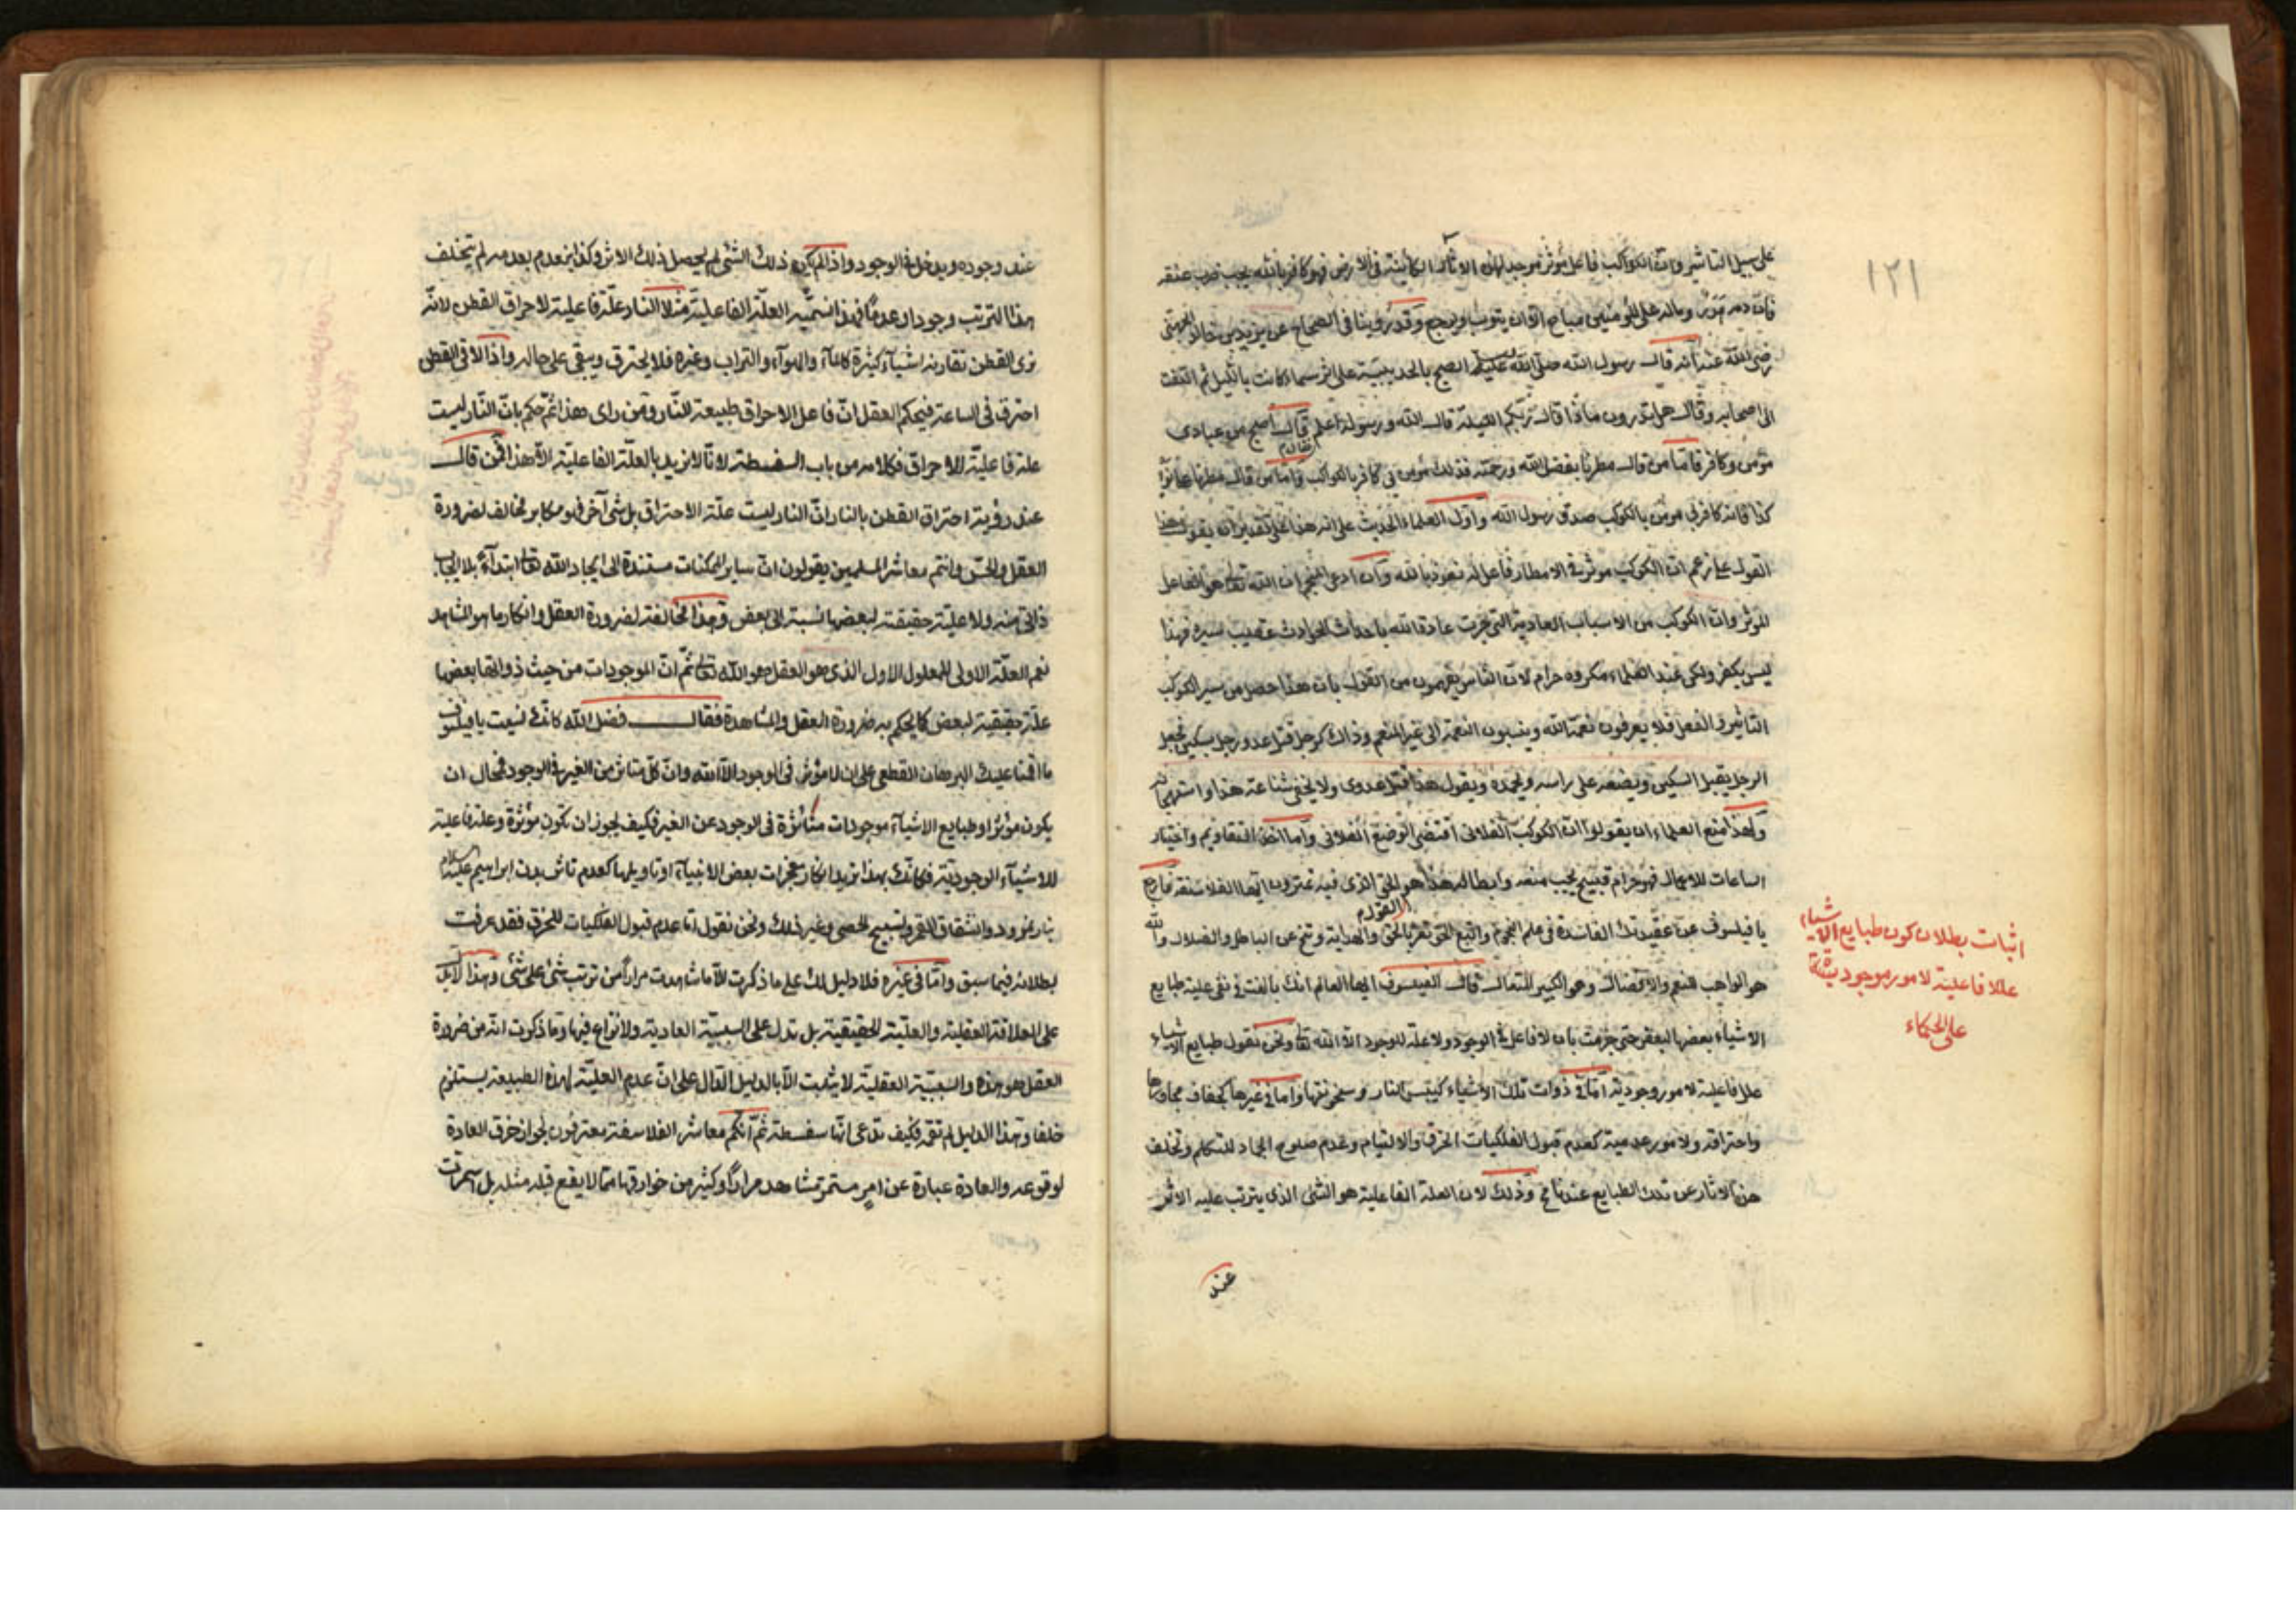 ١٢١
على سبيل التاثير وان الكواكب فاعل مؤثر موجد لهذه الاثار الكائنة فى الارض فهو كافر بالله يجب ضرب عنقه
فان دمه هدر وماله على المؤمنين مباح الا ان يتوب ويرجع وقد روينا فى الصحاح عن يزيد بن خالد الجهنى
رضى الله عنه انه قال رسول الله صلى الله عليه الصبح بالحديبية على اثر سماء كانت بالليل ثم التفت
الى اصحابه وقال هل تدرون ماذا قال ربكم الليلة قال الله ورسوله اعلم قال اصبح من عبادى
مؤمن وكافر فاما من قال مطرنا بفضل الله ورحمته فذلك مؤمن بى كافر بالكواكب واما من قال مطرنا
كذا فانه كافر بى مؤمن بالكوكب صدق رسول الله واول العلماء الحديث على انه هذا على تقدير انه يقول هذا
القول على زعم ان الكوكب مؤثر فى الامطار فاعل له نعوذ بالله وان ادعى المنجم ان الله تعالى هو الفاعل
المؤثر وان الكوكب من الاسباب العادية التى جرت عادة الله باحداث الحوادث عقيب سيره فهذا
ليس بكفر ولكن عند العلماء مكروه حرام لان الناس يفهمون من القول بان هذا حصل من سير الكوكب
التاثير والفعل فلا يعرفون نعمة الله وينسبون النعمة الى غير المنعم وذاك كرجل قتل عدو رجل بسكين فجعل
الرجل يقبل السكين ويضعه على راسه ويحمده ويقول هذا قتل عدوى ولا يخفى شناعة هذا واستهجانه
ولهذا منع العلماء ان يقولوا ان الكوكب الفلانى اقتضى الوضع الفلانى واما اخذ التقاويم واختيار
الساعات للاعمال فهو حرام قبيح يجب منعه وابطاله هذا هو الحق الذى فيه تمترون ايها الفلاسفة فارجع
يا فيلسوف عن عقيدتك الفاسدة فى علم النجوم واتبع الحق تفز بالحق والهداية وتنج عن الباطل والضلال والله
هو الواهب المنعم والافضال وهو الكبير المتعال قال الفيلسوف ايها العالم انك بالغت فى نفى علية طبايع
الاشياء بعضها لبعض حتى جزمت بان لا فاعل فى الوجود ولا علة للوجود الا الله تعالى ونحن نقول طبايع الاشياء
علل فاعلية لامور وجودية اما فى ذوات تلك الاشياء كيبس النار وسخونتها واما فى غيرها كجفاف مجاورها
واحتراقه ولامور عدمية كعدم قبول الفلكيات الخرق والالتيام وعدم صلوح الجماد للتكلم وتخلف
هذه الاثار عن تلك الطبايع عندنا مح وذلك لان العلة الفاعلية هو الشئ الذى يترتب عليه الاثر
عند
اثبات بطلان كون طبايع الاشياء
عللا فاعلية لامور موجودية
على الحكماء
عند وجوده ويدخل فى الوجود واذا لم يكن ذلك الشئ لم يحصل ذلك الاثر وكذا ينعدم بعدمه لم يتخلف
هذا الترتب وجودا وعدما فهذا نسميه العلة الفاعلية مثلا النار علة فاعلية لاحراق القطن لانه
نرى القطن تقارنه اشياء كثيرة كالماء والهواء والتراب وغيره فلا يحترق ويبقى على حاله واذا لاقى القطن
احترق فى الساعة فيحكم العقل ان فاعل الاحراق طبيعة النار ومن راى هذا ثم حكم بان النار ليست
علة فاعلية للاحراق فكلامه من باب السفسطة لانا لا نريد بالعلة الفاعلية الا هذا فمن قال
عند رؤية احتراق القطن بالنار ان النار ليست علة الاحتراق بل شئ آخر فهو مكابر مخالف لضرورة
العقل والحس وانتم معاشر المسلمين يقولون ان ساير الممكنات مستندة الى ايجاد الله تعالى ابتداء بلا ايجاب
ذاتى منه ولا علية حقيقية لبعضها بالنسبة الى بعض وهذا مخالفة لضرورة العقل وانكار ما هو الشاهد
نعم العلة الاولى للمعلول الاول الذى هو العقل هو الله تعالى ثم ان الموجودات من حيث ذواتها بعضها
علة حقيقية لبعض كما يحكم به ضرورة العقل والمشاهدة فقال فضل الله كانك نسيت يا فيلسوف
ما اقمنا عليك البرهان القطعى على ان لا مؤثر فى الوجود الا الله وان كل متاثر من الغير فى الوجود فمحال ان
يكون مؤثرا وطبايع الاشياء موجودات متاثرة فى الوجود عن الغير فكيف يجوز ان تكون مؤثرة وعلة فاعلية
للاشياء الوجودية فكانك بهذا تريد انكار معجزات بعض الانبياء او تاويلها كعدم تاثر بدن ابراهيم عليه السلام
بنار نمرود وانشقاق القمر وتسبيح الحصى وغير ذلك ونحن نقول اما عدم قبول الفلكيات للخرق فقد عرفت
بطلانه فيما سبق واما فى غيره فلا دليل لك على ما ذكرت الا ما شاهدت مرارا من ترتب شئ على شئ وهذا لا يدل
على العلاقة العقلية والعلية الحقيقية بل تدل على السببية العادية ولا نزاع فيها وما ذكرت انه من ضرورة
العقل هو هذه والسببية العقلية لا يثبت الا بالدليل الدال على ان عدم العلية لهذه الطبيعة يستلزم
خلفا وهذا الدليل لم تقم فكيف تدعى انها سفسطة ثم انكم معاشر الفلاسفة معترفون بجواز خرق العادة
لوقوعه والعادة عبارة عن امر مستمر تشاهد مرارا وكثير من خوارقها مما لا يقع قبله مثله بل استمرت